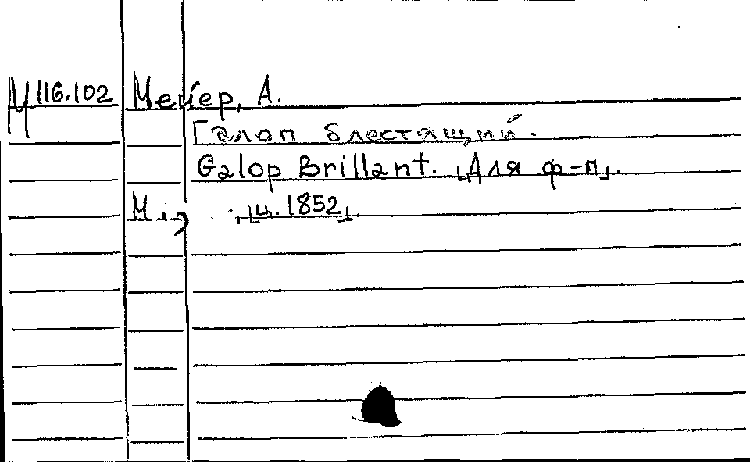 М 116.102 Мейер, А.
Галоп блестящий.
Galop Brillant. [Для ф-п].
М., [ц. 1852].